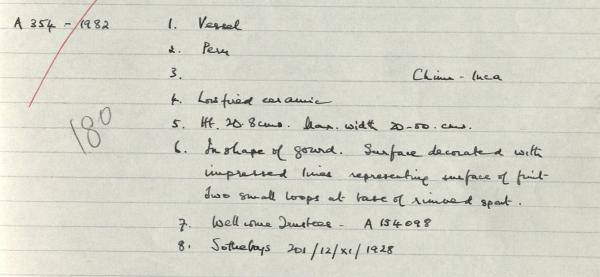 A 354 - 1982 1. Vessel
2. Peru
3. Chimu - Inca
4. Low fired ceramic
180
5. Ht. 20.8 cms. Max. width 20.00. cms.
6. In shape of gourd. Surface decorated with
impressed lines representing surface of fruit
two small loops at base of rimmed spout.
7. Wellcome Trustees - A 154098
8. Sothebys 201/12/xi/1928